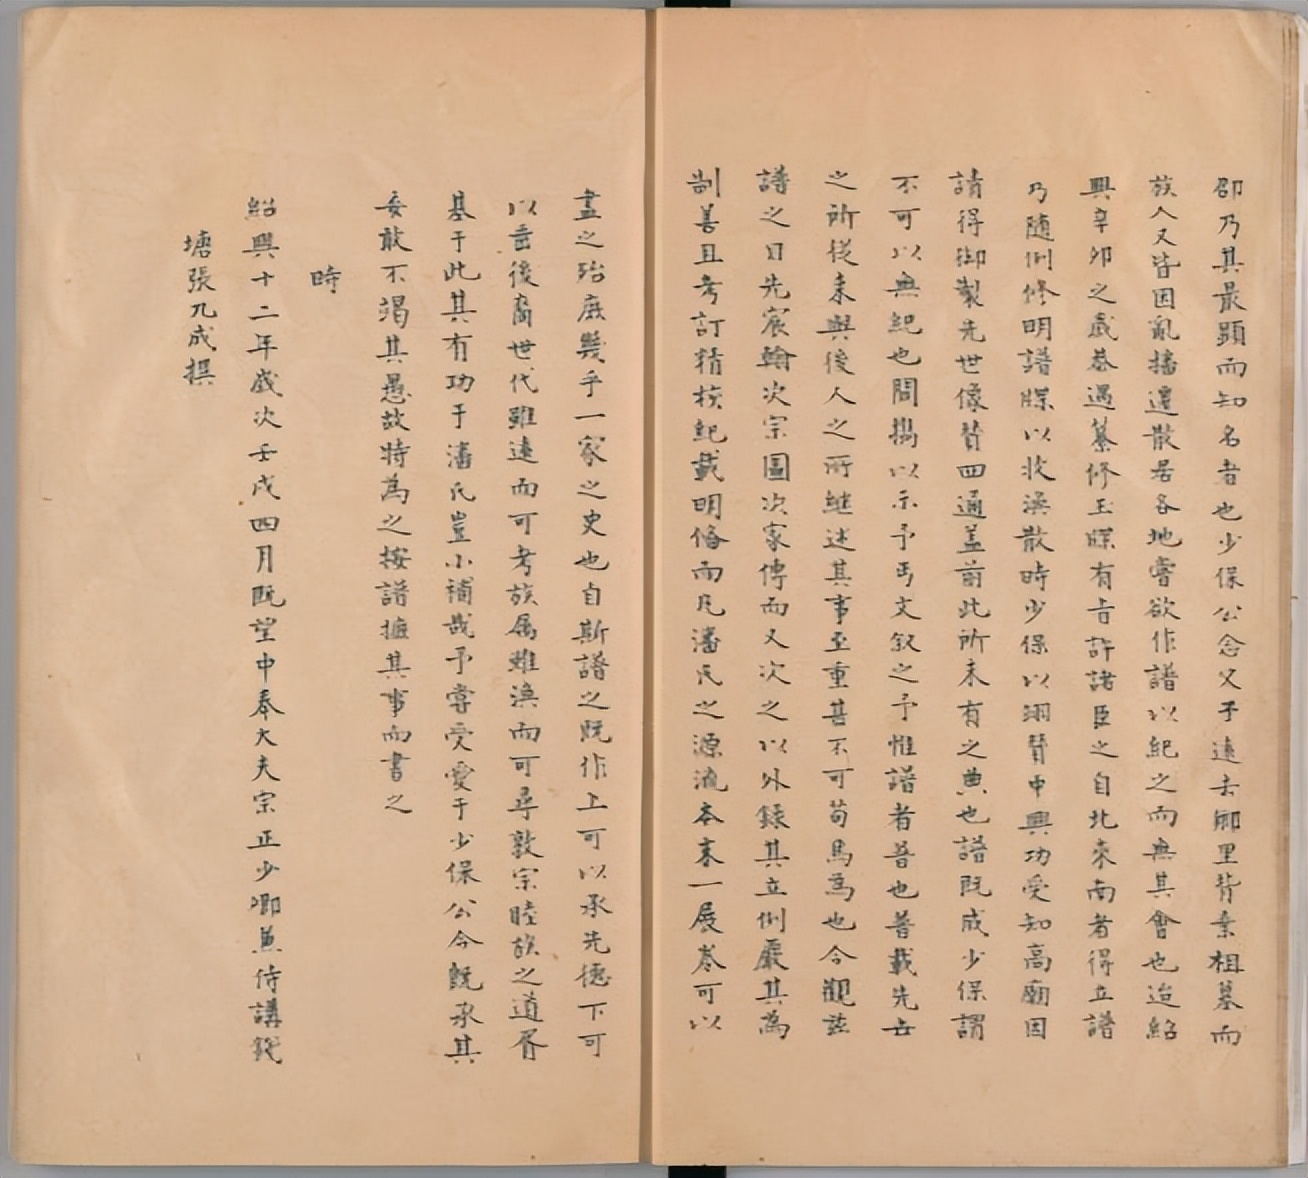 郤乃其最顯而知名者也少保公念父子遠去鄉里背棄祖墓而
族人又皆因亂播遷散居各地嘗欲作譜以紀之而無其會也迨紹
興辛卯之歲恭遇纂修玉牒有旨許諸臣之自北來南者得立譜
乃隨例修明譜牒以收渙散時少保以翊贊中興功受知高廟因
請得御製先世像贊四通蓋前此所未有之典也譜既成少保謂
不可以無紀也間攜以示予丐文叙之予惟譜者普也普載先世
之所從来與後人之所繼述其事至重甚不可苟焉為也今觀茲
譜之日先宸翰次宗圖次家傳而又次之以外録其立例嚴其為
制善且考訂精核紀載明俻而凡潘氏之源流本末一展卷可以
盡之殆庶幾乎一家之史也自斯譜之既作上可以承先德下可
以啚後裔世代雖遠而可考族属雖渙而可尋敦宗睦族之道胥
基于此其有功于潘氏豈小補哉予嘗受愛于少保公今既承其
委敢不竭其愚故特為之按譜摭其事而書之
時
紹興十二年歲次壬戌四月既望中奉大夫宗正少卿兼侍講錢
塘張九成撰